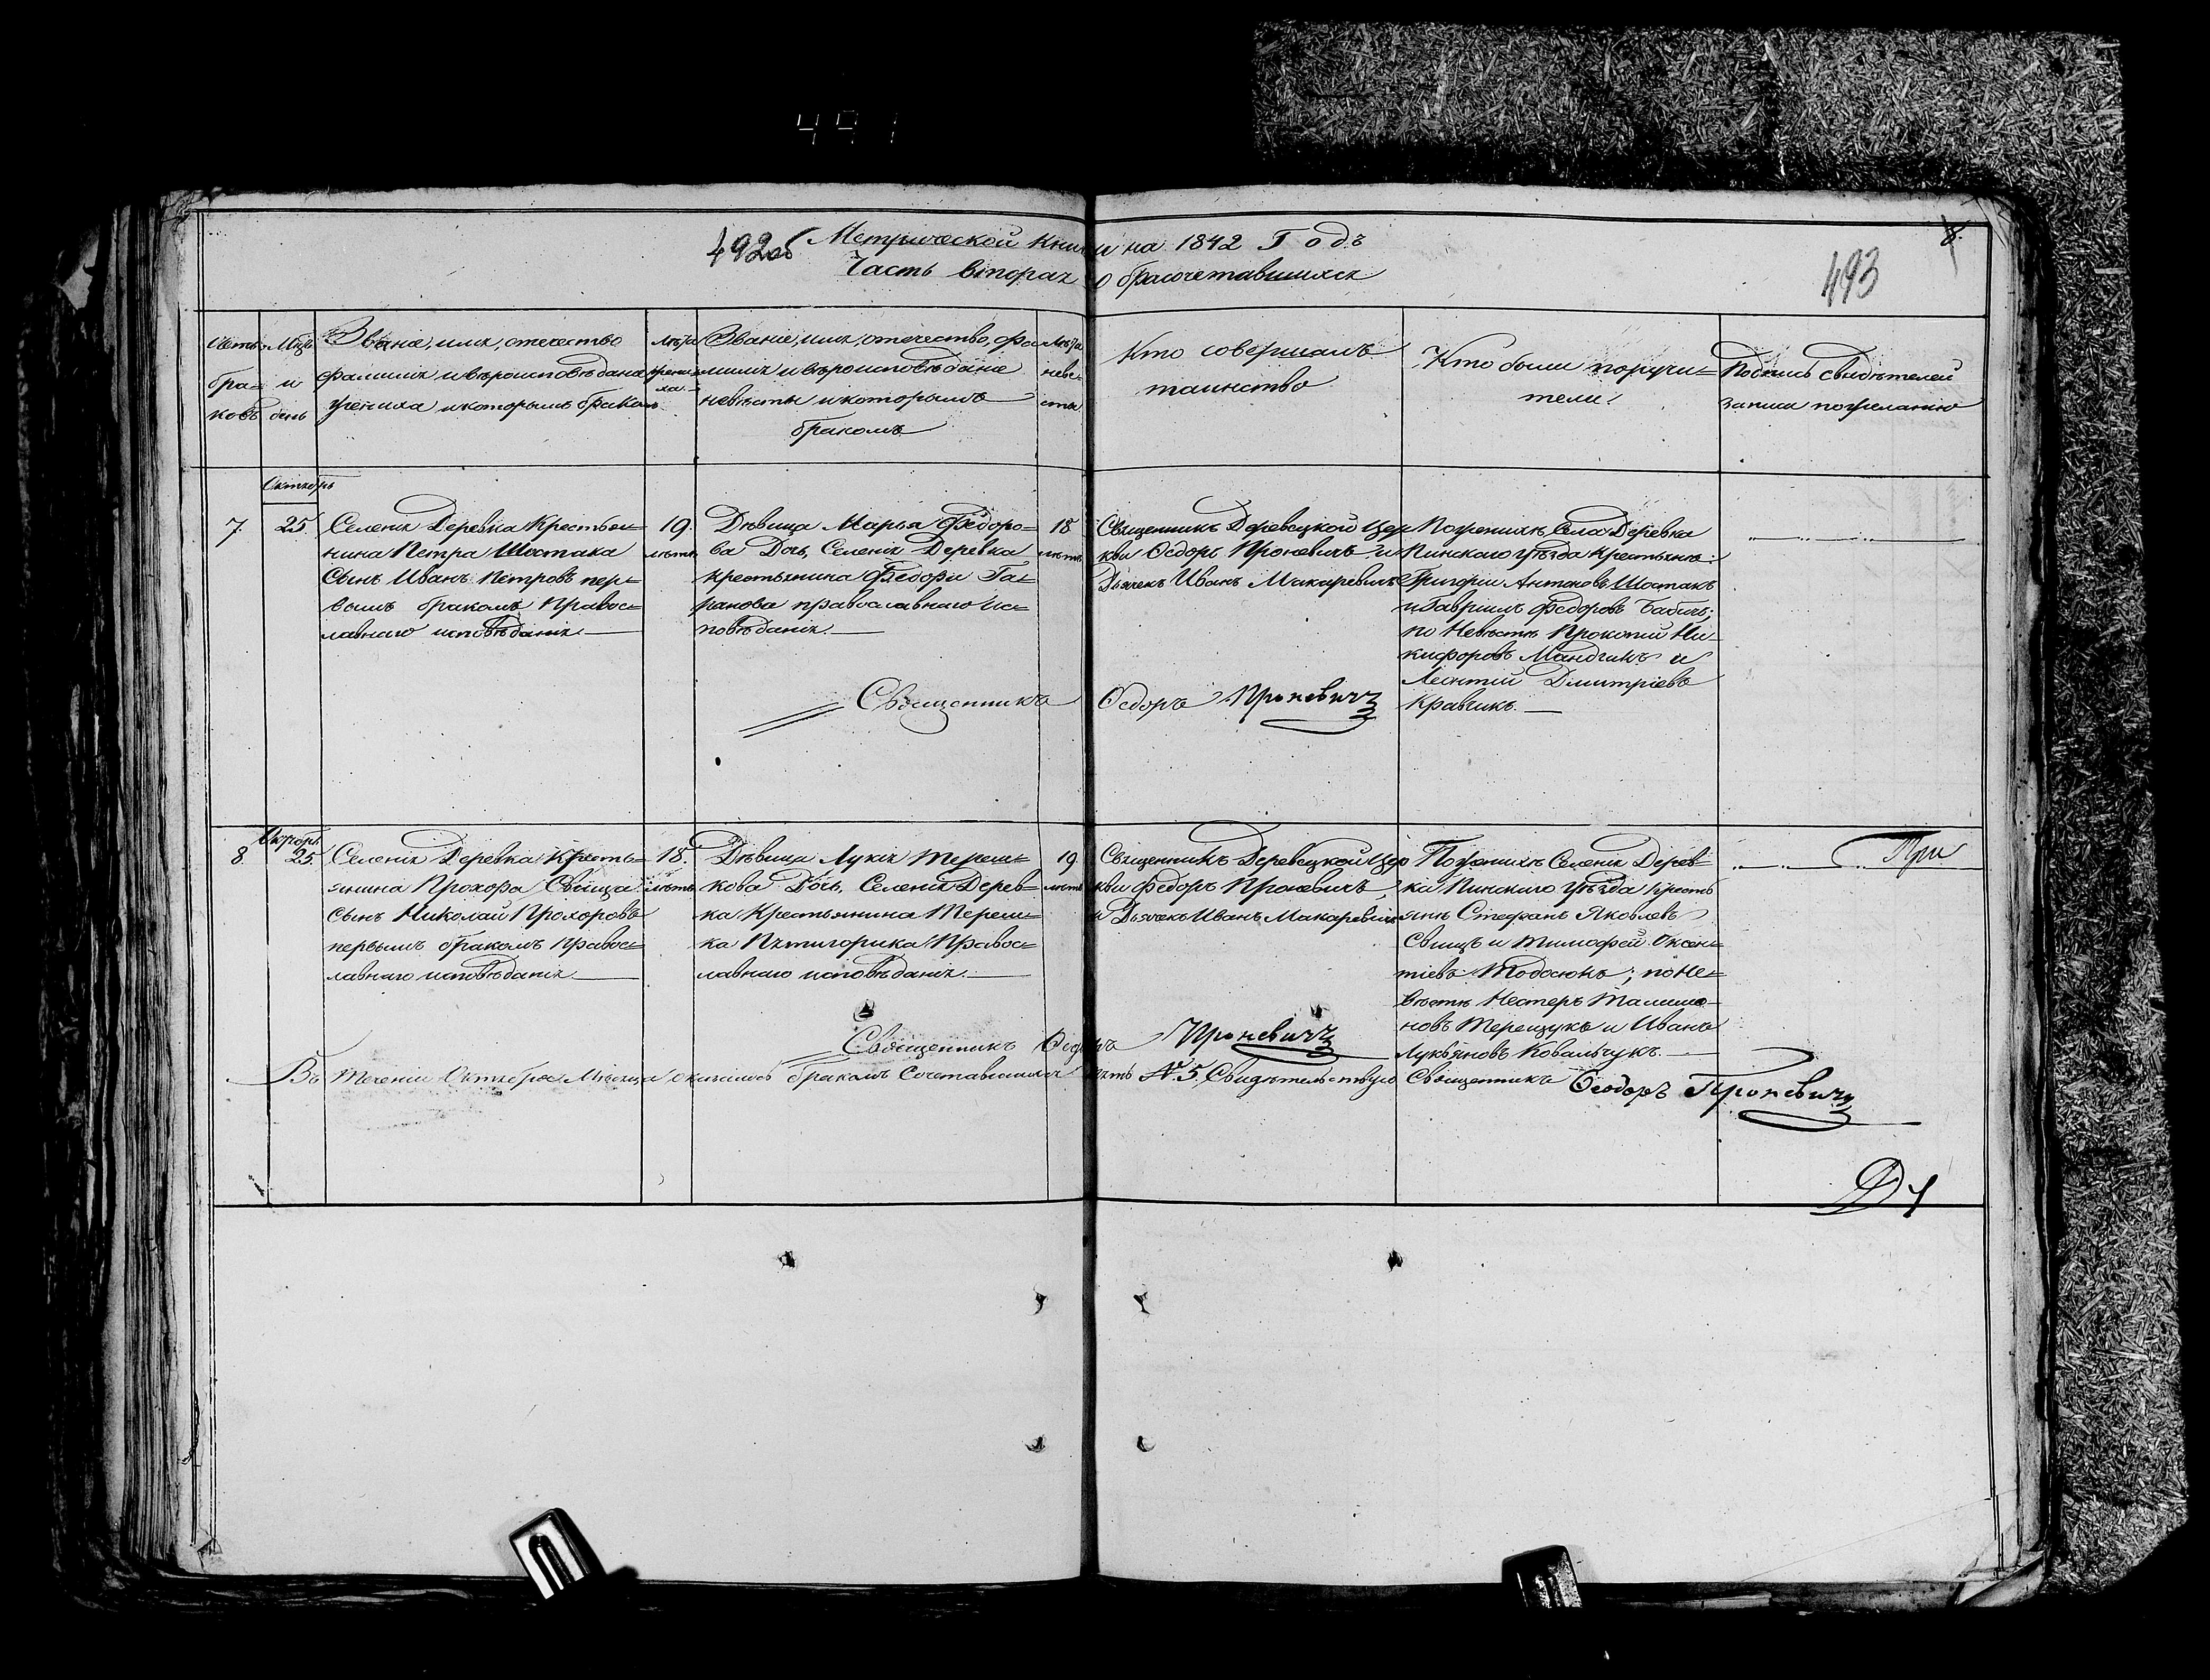 491
492об Метрической Книги на 1842 Годъ 8.
Часть вторая о бракосочетавшихся 493
Счетъ браковъ
Мцъ и день
Званіе, имя, отечество
фамилія и вѣроисповѣданіе
жениха и которымъ бракомъ
лѣта жениха
Званіе, имя, отечество, фа
милія и вѣроисповѣданіе
невѣсты и которымъ
бракомъ
Лѣта невесты
Кто совершалъ
таинство
Кто были поручи=
тели
Подпись свидѣтелей
записи по желанію
Октябрь
7.
25.
Селенія Деревка Крестья=
нина Петра Шостака
Сынъ Иванъ Петровъ пер=
вымъ бракомъ Правос=
лавнаго исповѣданія.
19.
лѣтъ
Дѣвица Марья Федоро=
ва Дочь, Селенія Деревка
крестьянина Федора Га=
панова православнаго ис=
повѣданія.
18
лѣтъ
Священникъ Деревецкой Цер
кви Ѳедоръ Проневичъ и
Дьячекъ Иванъ Макаревичъ
По женихѣ, Села Деревка
Пинскаго уѣзда Крестьяне:
Григорій Антоновъ Шостакъ
и Гавріилъ Федоровъ Бабичъ;
по Невѣстѣ Прокопій Ни=
кифоровъ Мандзикъ и
Леонтій Дмитріевъ
Кравчикъ.
Священникъ Ѳедоръ Проневичъ
Октябрь
8
25.
Селенія Деревка Кресть=
янина Прохора Свища
сынъ Николай Прохоровъ
первымъ бракомъ Правос=
лавнаго исповѣданія
18.
лѣтъ
Дѣвица Лукія Тереш=
кова Дочь, Селенія Дерев=
ка Крестьянина Тереш=
ка Пятигорика Правос=
лавнаго исповѣданія.
19
лѣтъ
Священникъ Деревецкой Цер
кви Федоръ Проневичъ,
и Дьячекъ Иванъ Макаревичъ
По женихѣ Селенія Дерев=
ка Пинскаго уѣзда Кресть
яне Стефанъ Яковлевъ
Свищъ и Тимофей Оксен=
тіевъ Тодосюкъ; по Не=
вѣстѣ Нестеръ Талимо=
новъ Терещукъ и Иванъ
Лукьяновъ Ковальчукъ.
При
Священникъ Ѳедоръ Проневичъ
Въ Теченіи Октября Мѣсяца оказалось бракомъ Сочетавшихся пять № 5. Свидѣтельствую Священникъ Ѳеодоръ Проневичъ